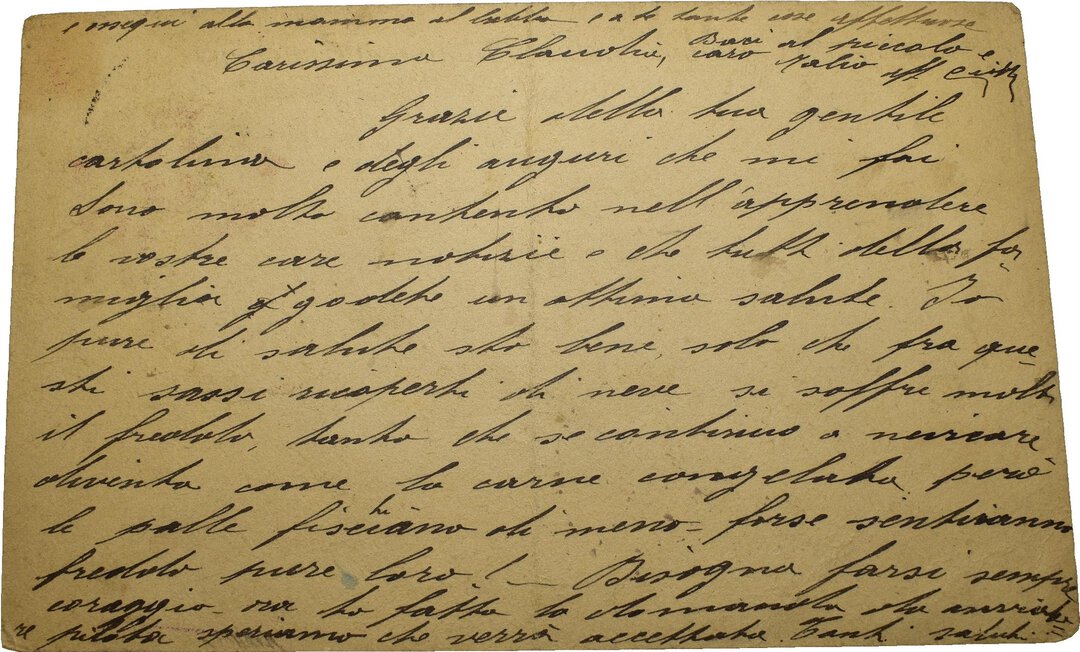 e ossequi alla mamma al babbo e a te tante cose affettuose
Carissima Claudia, Baci al piccolo e
caro Italio
Grazie della tua gentile
cartolina e degli auguri che mi fai
Sono molto contento nell'apprendere
le vostre care notizie e che tutti della fa-
miglia godete un ottima salute. Io
pure di salute sto bene, solo che fra que-
sti sassi ricoperti di neve si soffre molto
il freddo, tanto che se continuo a nevicare
divento come la carne congelata però
le palle fischiano di meno - forse sentiranno
freddo pure loro! - Bisogna farsi sempre
coraggio - ora ho fatto la domanda da aviato=
re pilota speriamo che verrà accettata. Tanti saluti